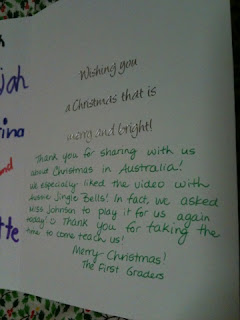 Wishing you
a Christmas that is
merry and bright!
Thank you for sharing with us
about Christmas in Australia!
We especially liked the video with
Aussie Jingle Bells! In fact, we asked
Miss Johnson to play it for us again
today! Thank you for taking the
time to come teach us!
Merry Christmas!
The First Graders